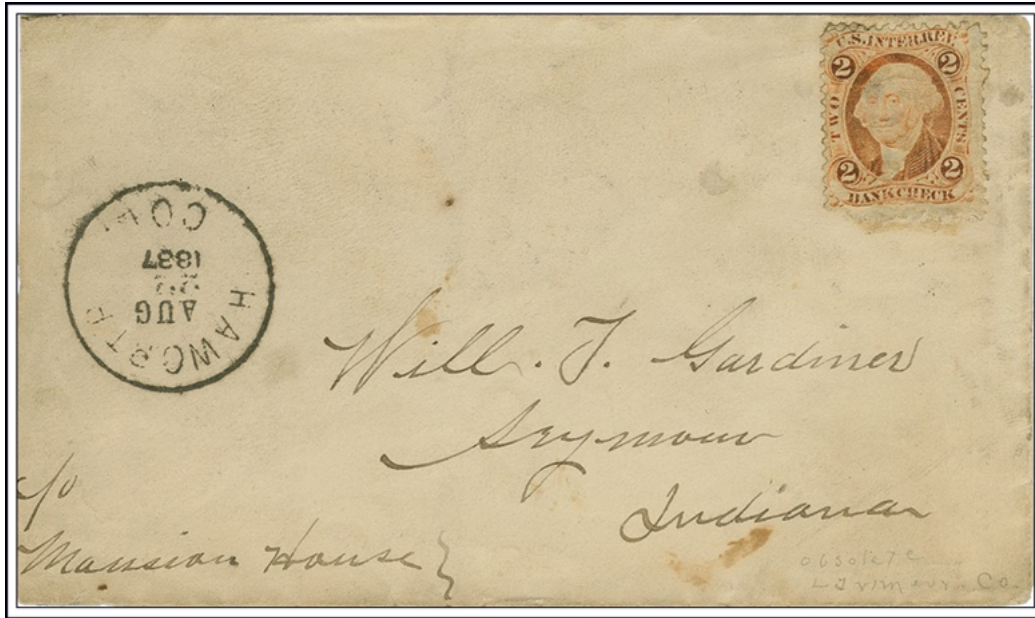 U.S. INTER. REV.
2 2
TWO CENTS
2 2
BANK CHECK
HAWORTH
AUG
22
1887
COLO.
Will. T. Gardiner
Seymour
Indiana
c/o
Mansion House }
obsolete
Larimer. Co.